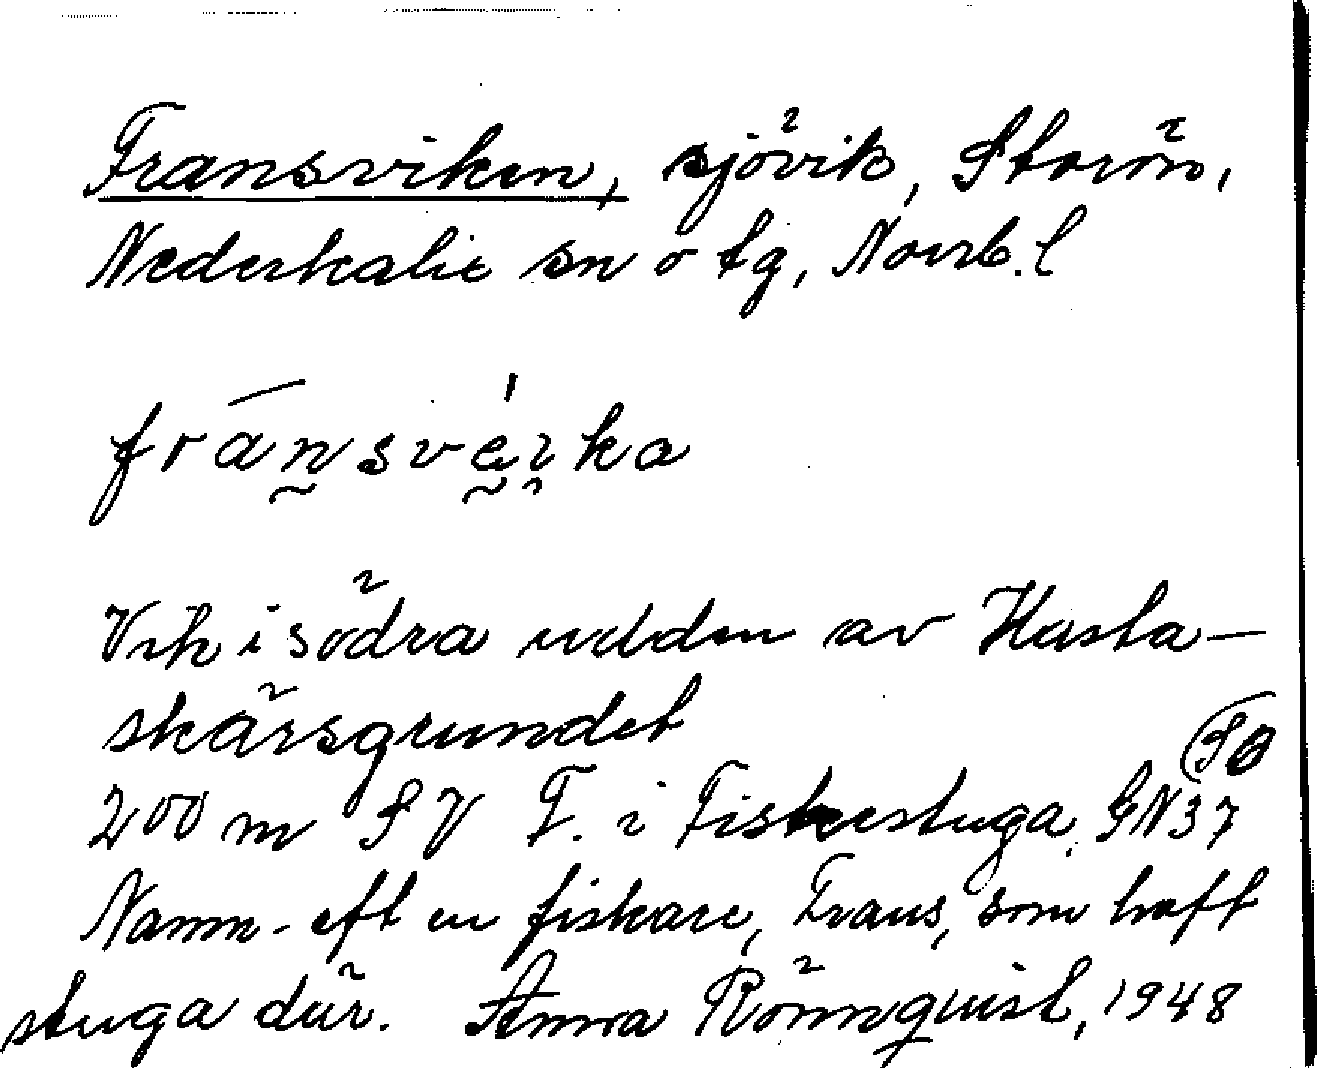 Fransviken, sjövik, Storön,
Nederkalix sn o tg, Norrb. l
fransvei̯ka
Vik i södra udden av Hasta-
skärsgrundet
200 m SV F. i Fiskestuga GN37
Namn eft en fiskare, Frans, som haft
stuga där. Anna Rönnquist, 1948